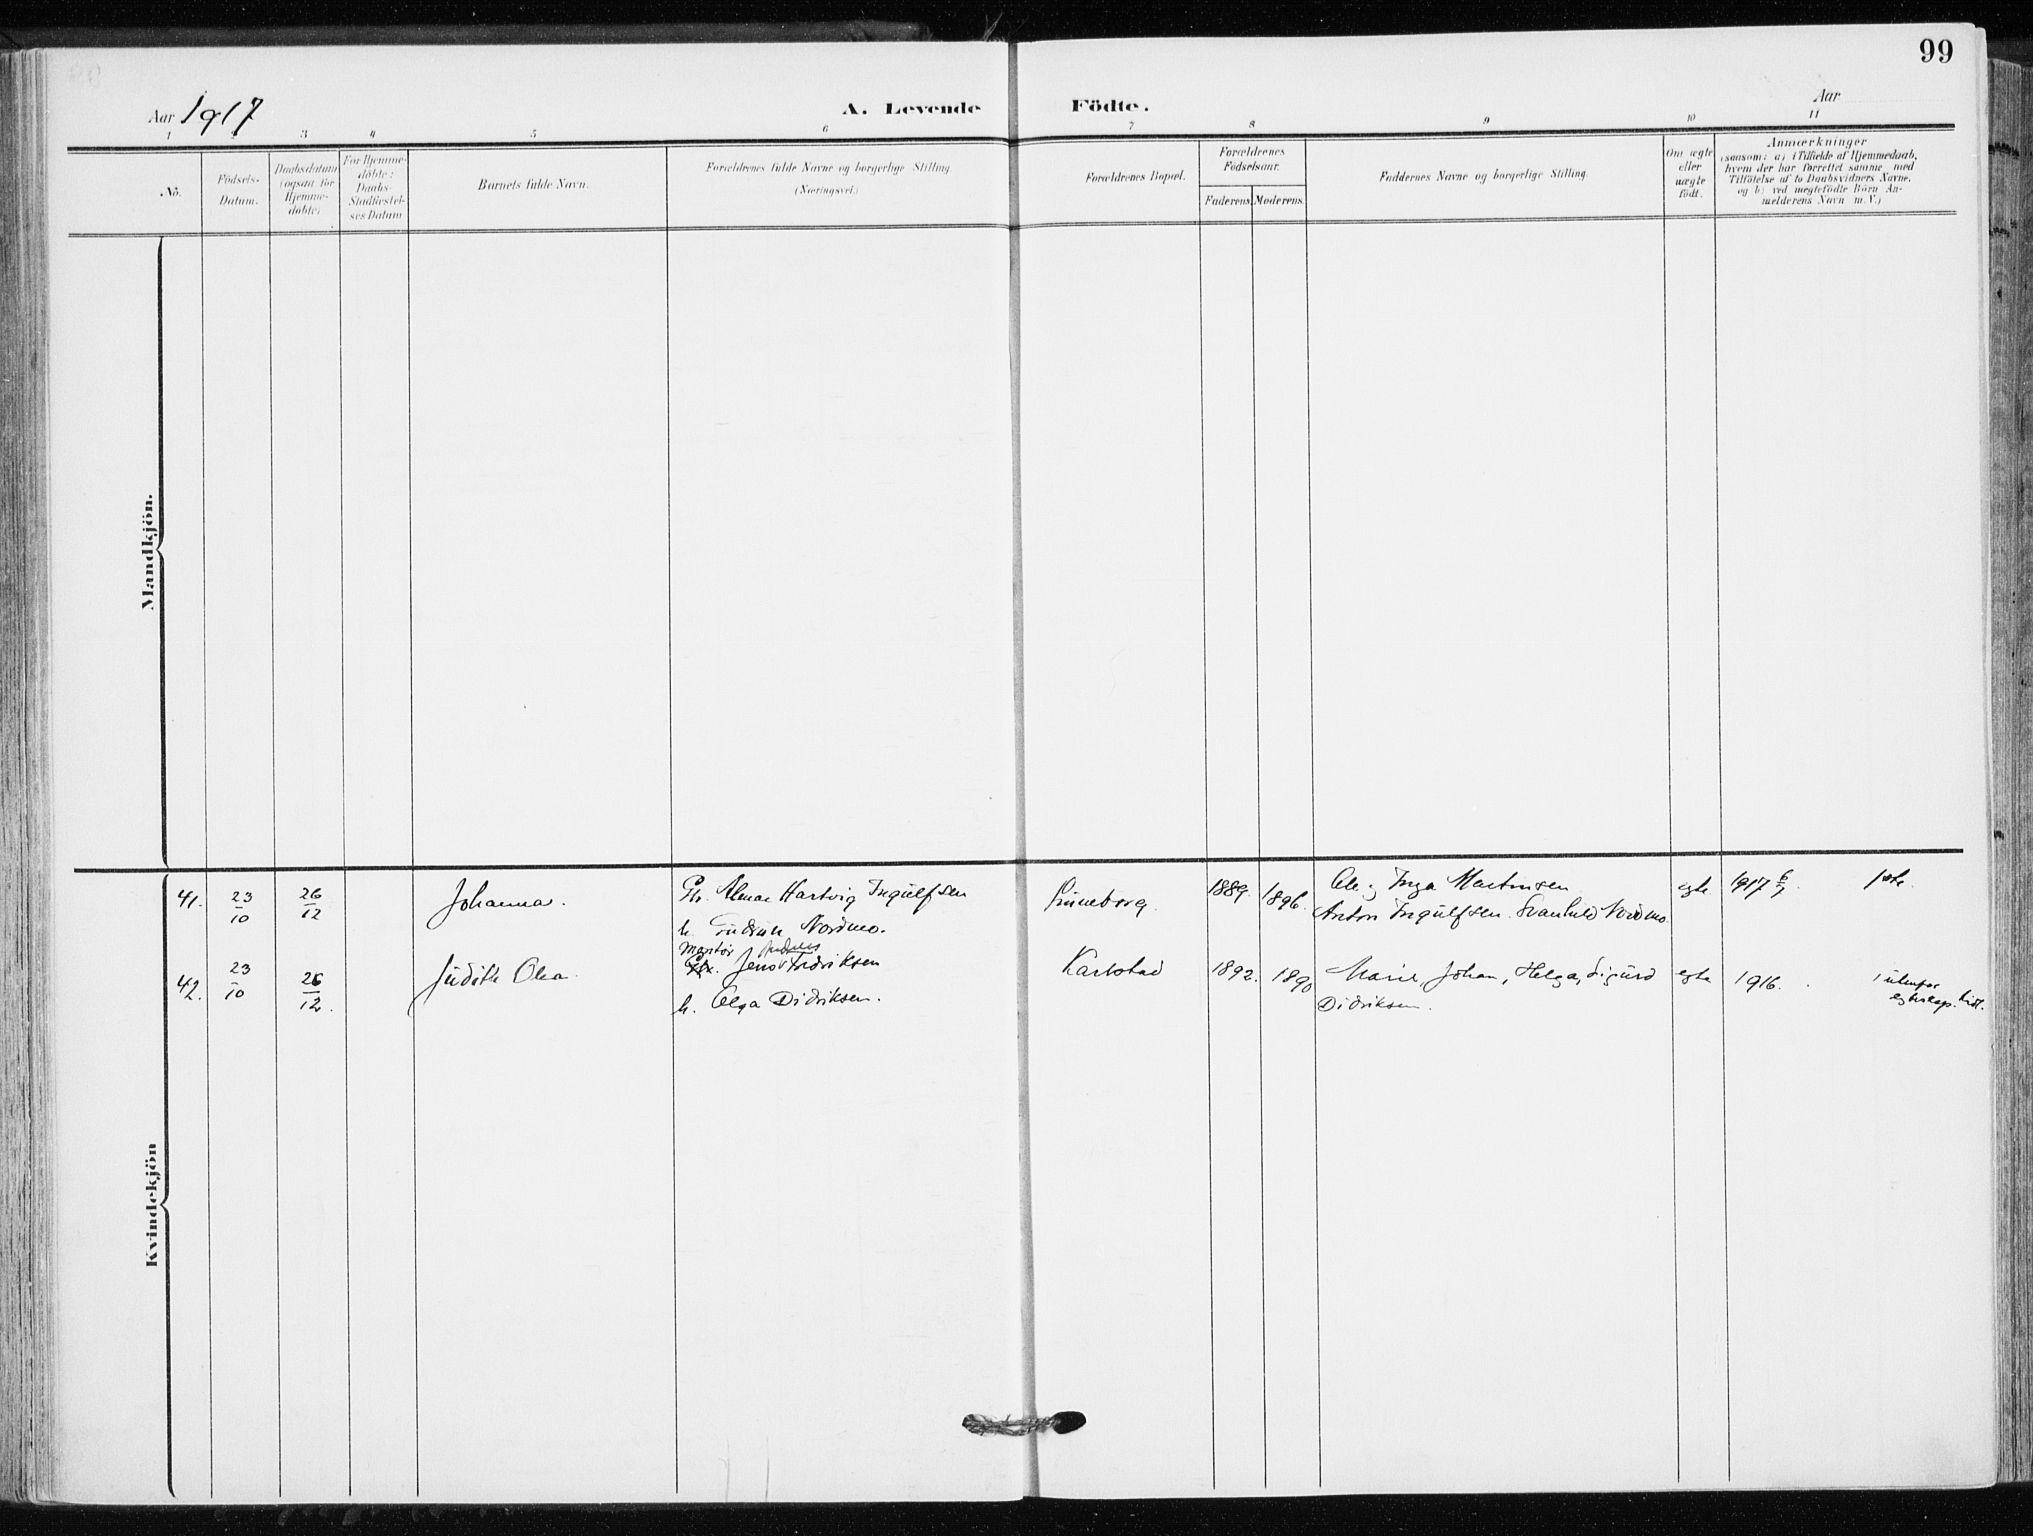 99
Aar 1917
A. Levende Födte.
Aar
1 2 3 4 5 6 7 8 9 10 11
No.
Födsels-
Datum.
Daabsdatum
(ogsaa for
Hjemme-
döbte)
For Hjemme-
döbte:
Daabs-
Stadfæstel-
ses Datum
Barnets fulde Navn.
Forældrenes fulde Navne og borgerlige Stilling
(Næringsvei.)
Forældrenes Bopæl.
Forældrenes
Födselsaar.
Faderens. Moderens.
Faddernes Navne og borgerlige Stilling.
Om ægte
eller
uægte
födt.
Anmærkninger
(saasom: a) i Tilfælde af Hjemmedaab,
hvem der har forrettet samme med
Tilföielse af to Daabsvidners Navne.
og b) ved uægtefödte Börn An-
melderens Navn m. V.)
Mandkjön.
41. 23/10 26/12 Johanna.
Hartvig Ingulfsen
h. Gudrun Nordmo.
1889. 1896.
Inga Martinsen
Anton Ingulfsen. Svanhild Nordmo
egte 1917
42. 23/10 26/12 Judith Olea.
Montør
Jens Fredriksen
h. Olga Didriksen.
Karlstad 1892. 1890
Marie, Johan, Helga, Sigurd
Didriksen.
egte 1916.
1 utenfor
egteskap.
Kvindekjön